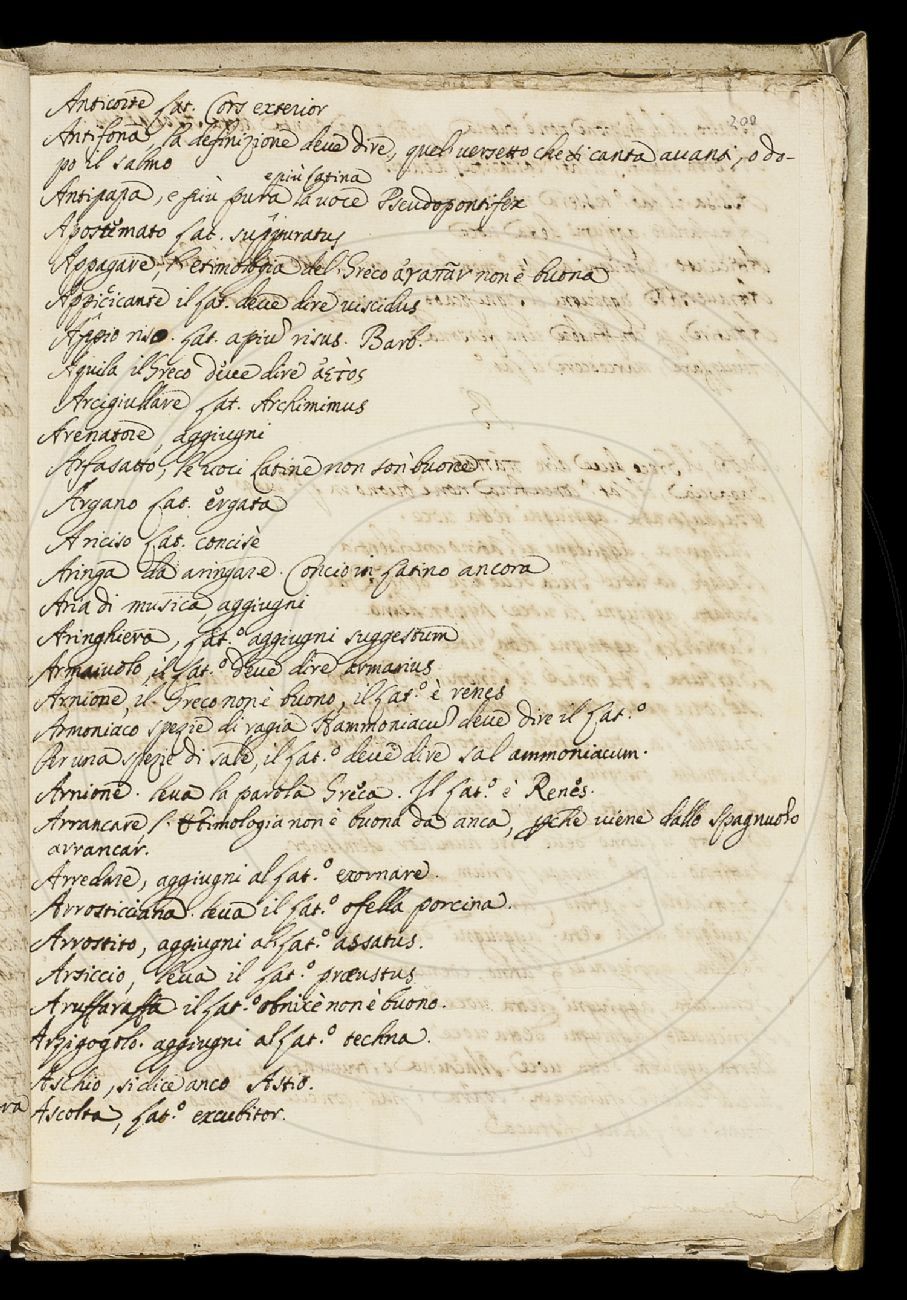 200
Anticorte lat. Cors exterior
Antifona, la definizione deve dire, quel versetto che si canta avanti, o do-
po il salmo
e più latina
Antipapa, e più pura la voce Pseudopontifex
Apostemato lat. suppuratus
Appagare, l'etimologia del Greco ἀγαπᾶν non è buona
Appiccicante il lat. deve dire viscidus
Appio riso. lat. apiu risus. Barb.
Aquila il Greco deve dire ἀετὸς
Arcigiullare lat. Archimimus
Arenatore, aggiugni
Arfasatto, le voci latine non son buone
Argano lat. ergata
Ariciso lat. concisè
Aringa da aringare. Concio in latino ancora
Aria di musica aggiugni
Aringhiera, lat.º aggiugni suggestum
Armaiuolo, il lat.º deve dire armarius
Arnione, il Greco non è buono, il lat.º è renes
Armoniaco spezie di ragia Hammoniacu deve dire il lat.º
Per una spezie di sale, il lat.º deve dire sal ammoniacum.
Arnione. leva la parola Greca. Il lat.º è Renes.
Arrancare l'etimologia non è buona da anca, pche viene dallo Spagnuolo
arrancar.
Arredare, aggiugni al lat.º exornare.
Arrosticciana. leva il lat.º ofella porcina.
Arrostito, aggiugni al lat.º assatus.
Arsiccio, leva il lat.º præustus
Aruffaraffa il lat.º obnixe non è buono.
Arzigogolo. aggiugni al lat.º techna.
Aschio, si dice anco Astio.
Ascolta, lat.º excubitor.